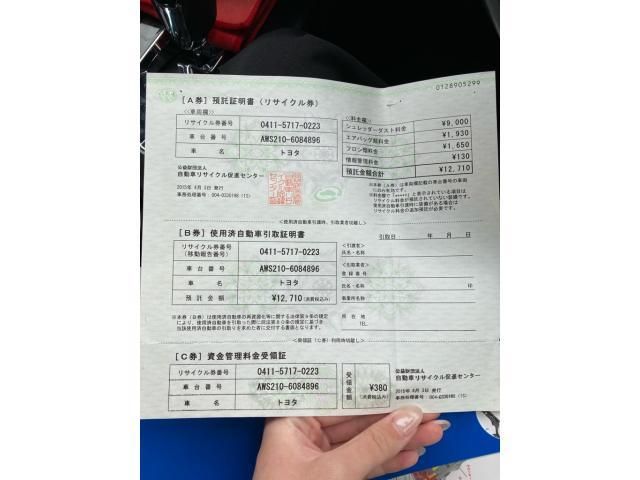 0128905299
[A券] 預託証明書(リサイクル券)
<<車両欄>>
リサイクル券番号 0411-5717-0223
車台番号 AWS210-6084896
車名 トヨタ
<<料金欄>>
シュレッダーダスト料金 ¥9,000
エアバッグ類料金 ¥1,930
フロン類料金 ¥1,650
情報管理料金 ¥130
預託金額合計 ¥12,710
公益財団法人
自動車リサイクル促進センター
2015年 4月 3日 発行
事務処理番号: 004-0330198 (15)
<使用済自動車引渡時、引取業者切離し>
[B券] 使用済自動車引取証明書
引取日 年 月 日
リサイクル券番号
(移動報告番号) 0411-5717-0223
車台番号 AWS210-6084896
車名 トヨタ
預託金額 ¥12,710(消費税込み)
<引渡者>
氏名・名称
<引取業者>
登録番号
氏名・名称 印
事業所名称
所在地
TEL.
<受領証(C券)利用時切離し>
[C券] 資金管理料金受領証
リサイクル券番号 0411-5717-0223
車台番号 AWS210-6084896
車名 トヨタ
受領金額 ¥380
(消費税込み)
公益財団法人
自動車リサイクル促進センター
2015年 4月 3日 発行
事務処理番号: 004-0330198 (15)